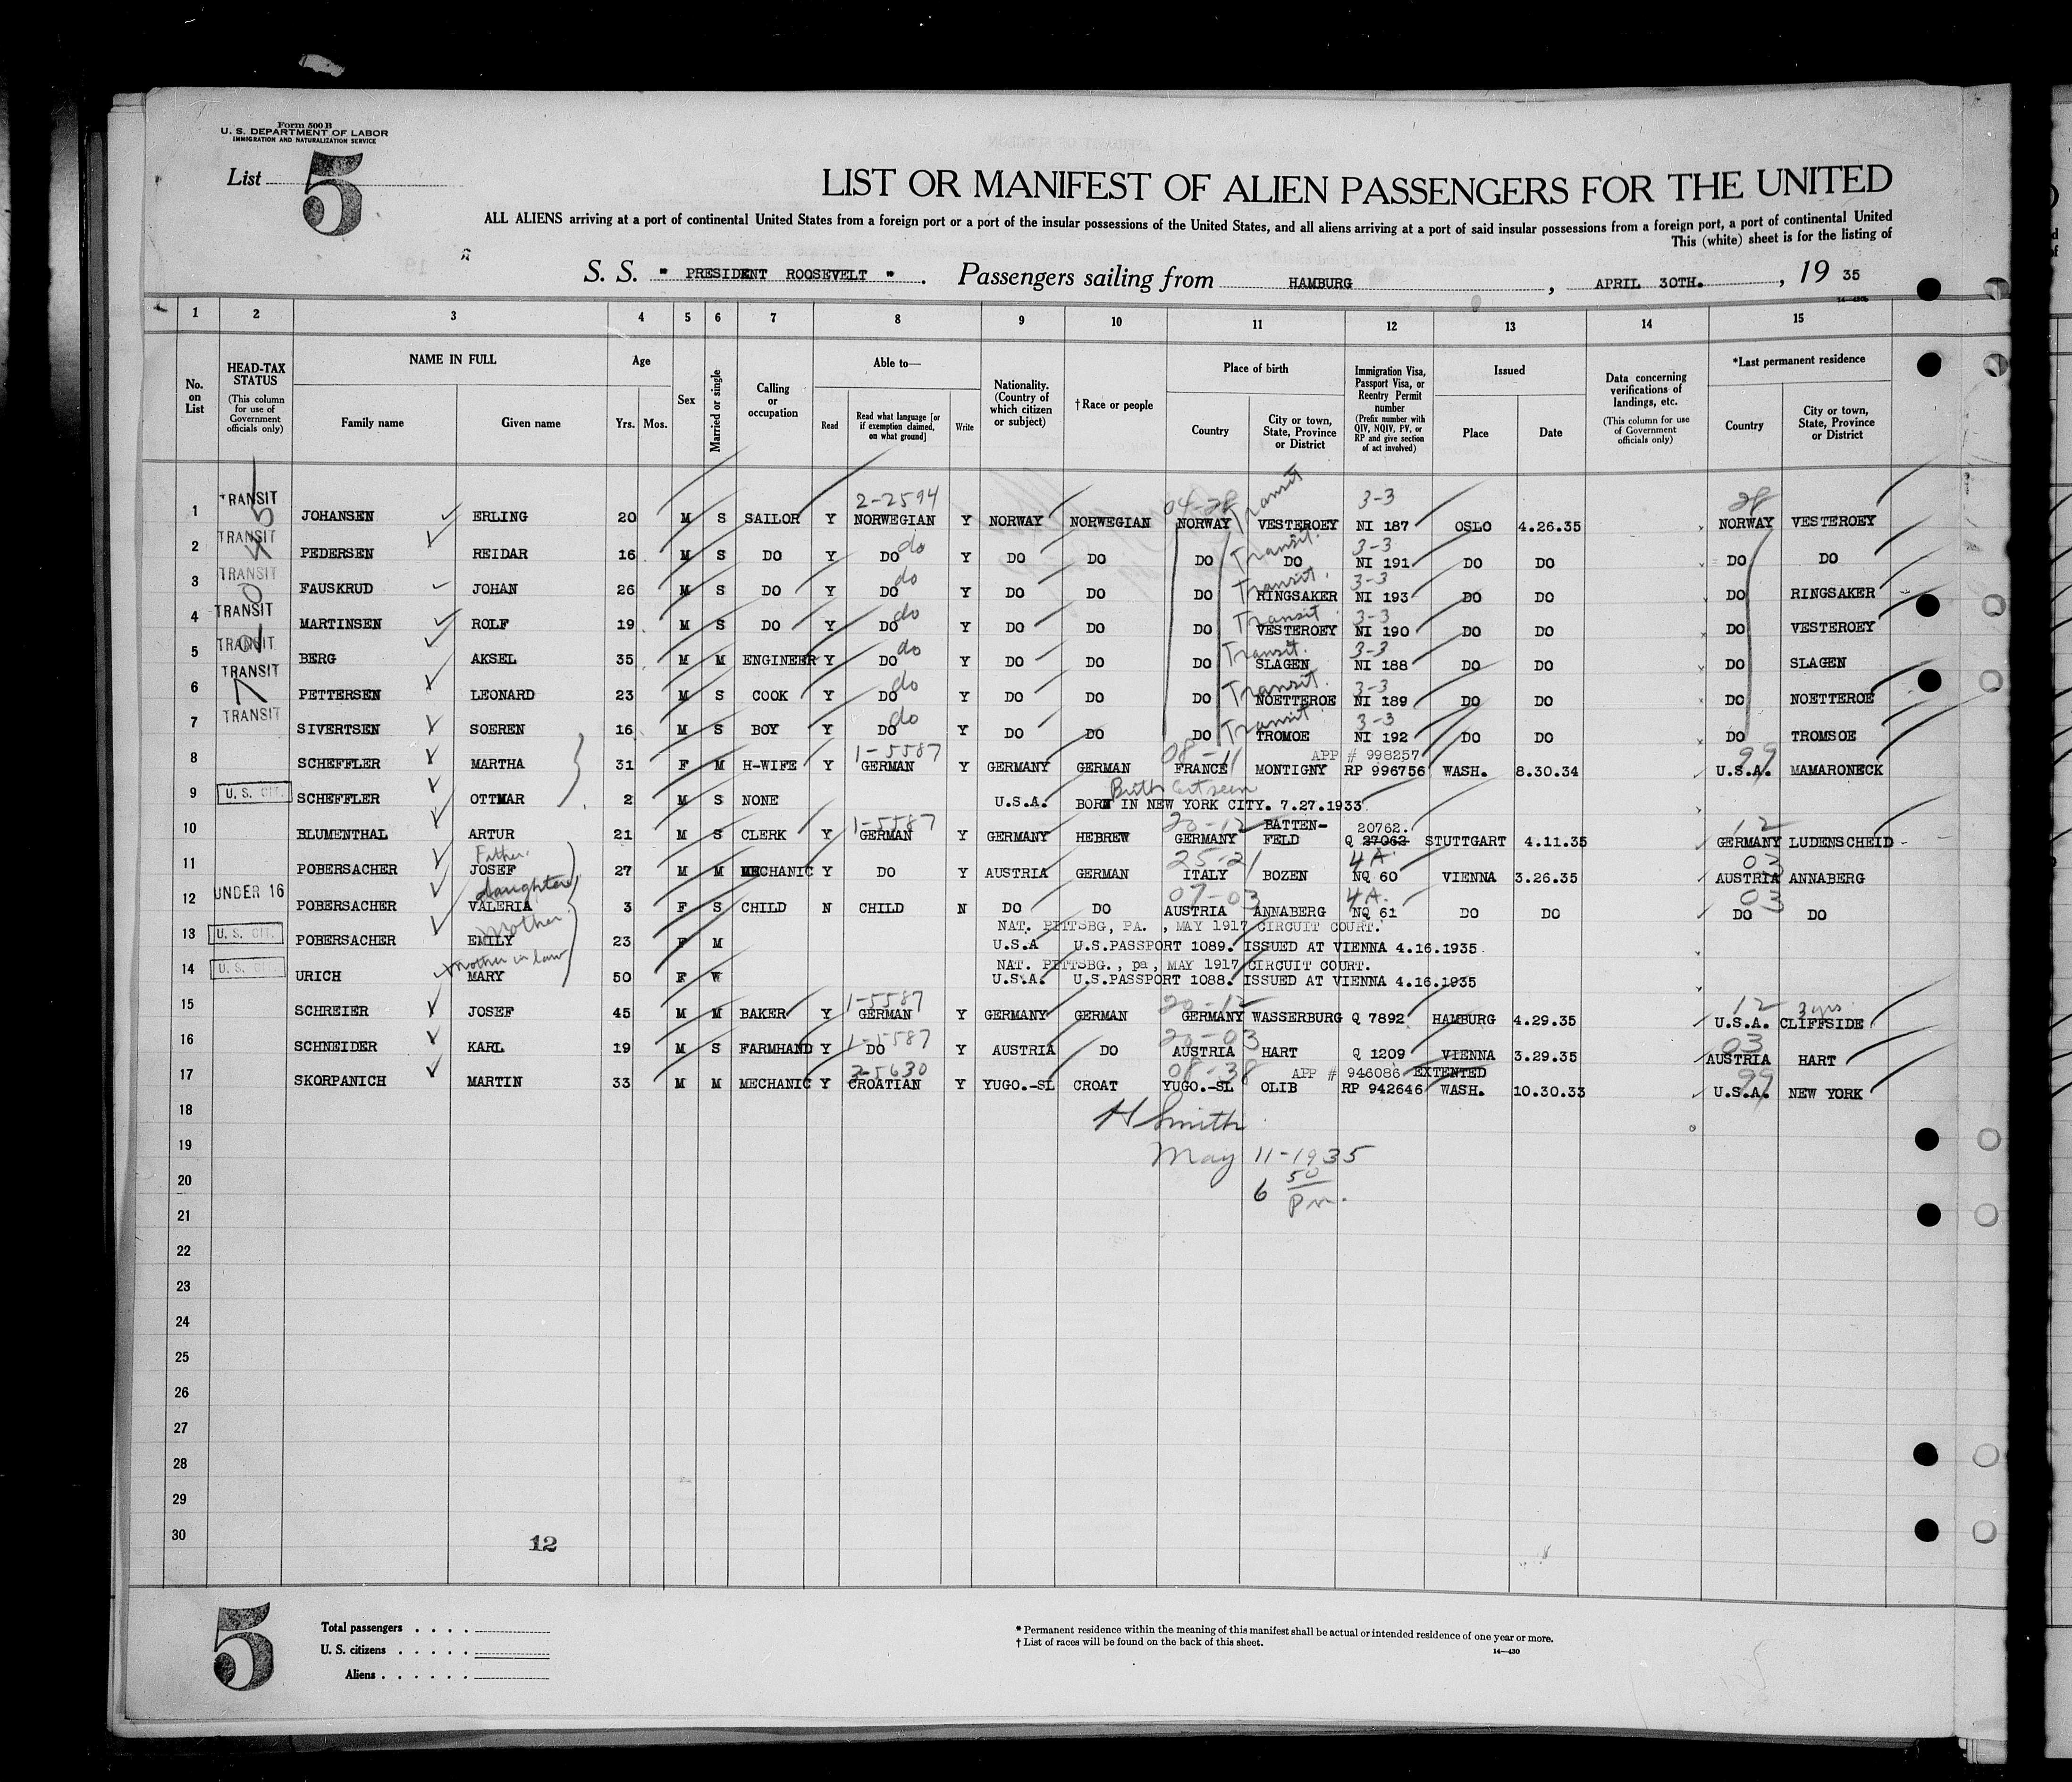 Form 500 B
U. S. DEPARTMENT OF LABOR
IMMIGRATION AND NATURALIZATION SERVICE
List 5
LIST OR MANIFEST OF ALIEN PASSENGERS FOR THE UNITED
ALL ALIENS arriving at a port of continental United States from a foreign port or a port of the insular possessions of the United States, and all aliens arriving at a port of said insular possessions from a foreign port, a port of continental United
This (white) sheet is for the listing of
S. S. " PRESIDENT ROOSEVELT ". Passengers sailing from HAMBURG , APRIL 30TH. , 19 35
14-430b
1 2 3 4 5 6 7 8 9 10 11 12 13 14 15
No. on List
HEAD-TAX STATUS (This column for use of Government officials only)
NAME IN FULL
Family name Given name
Age
Yrs. Mos.
Sex
Married or single
Calling or occupation
Able to—
Read
Read what language [or if exemption claimed, on what ground]
Write
Nationality. (Country of which citizen or subject)
†Race or people
Place of birth
Country
City or town, State, Province or District
Immigration Visa, Passport Visa, or Reentry Permit number (Prefix number with QIV, NQIV, PV, or RP and give section of act involved)
Issued
Place Date
Data concerning verifications of landings, etc. (This column for use of Government officials only)
*Last permanent residence
Country
City or town, State, Province or District
2-2594 04-28 Transit 3-3 28
1 TRANSIT JOHANSEN ERLING 20 M S SAILOR Y NORWEGIAN Y NORWAY NORWEGIAN NORWAY VESTEROEY NI 187 OSLO 4.26.35 NORWAY VESTEROEY
do Transit. 3-3
2 TRANSIT PEDERSEN REIDAR 16 M S DO Y DO Y DO DO DO DO NI 191 DO DO DO DO
do Transit. 3-3
3 TRANSIT FAUSKRUD JOHAN 26 M S DO Y DO Y DO DO DO RINGSAKER NI 193 DO DO DO RINGSAKER
do Transit 3-3
4 TRANSIT MARTINSEN ROLF 19 M S DO Y DO Y DO DO DO VESTEROEY NI 190 DO DO DO VESTEROEY
do Transit. 3-3
5 TRANSIT BERG AKSEL 35 M M ENGINEER Y DO Y DO DO DO SLAGEN NI 188 DO DO DO SLAGEN
do Transit. 3-3
6 TRANSIT PETTERSEN LEONARD 23 M S COOK Y DO Y DO DO DO NOETTEROE NI 189 DO DO DO NOETTEROE
do Transit 3-3
7 TRANSIT SIVERTSEN SOEREN 16 M S BOY Y DO Y DO DO DO TROMOE NI 192 DO DO DO TROMSOE
1-5587 08-11 APP # 998257 99
8 SCHEFFLER MARTHA 31 F M H-WIFE Y GERMAN Y GERMANY GERMAN FRANCE MONTIGNY RP 996756 WASH. 8.30.34 U.S.A. MAMARONECK
Birth Cert seen
9 U. S. CIT. SCHEFFLER OTTMAR 2 M S NONE U.S.A. BORN IN NEW YORK CITY. 7.27.1933
1-5587 20-12 BATTEN- 20762. 12
10 BLUMENTHAL ARTUR 21 M S CLERK Y GERMAN Y GERMANY HEBREW GERMANY FELD Q 27062 STUTTGART 4.11.35 GERMANY LUDENSCHEID
Father. 25-21 4A. 03
11 POBERSACHER JOSEF 27 M M MECHANIC Y DO Y AUSTRIA GERMAN ITALY BOZEN NQ 60 VIENNA 3.26.35 AUSTRIA ANNABERG
daughter 07-03 4A. 03
12 UNDER 16 POBERSACHER VALERIA 3 F S CHILD N CHILD N DO DO AUSTRIA ANNABERG NQ 61 DO DO DO DO
mother. NAT. PITTSBG, PA. , MAY 1917 CIRCUIT COURT.
13 U. S. CIT. POBERSACHER EMILY 23 F M U.S.A U.S.PASSPORT 1089. ISSUED AT VIENNA 4.16.1935
mother in law NAT. PITTSBG., pa, MAY 1917 CIRCUIT COURT.
14 U. S. CIT. URICH MARY 50 F W U.S.A. U.S.PASSPORT 1088. ISSUED AT VIENNA 4.16.1935
1-5587 20-12 12 3 yrs
15 SCHREIER JOSEF 45 M M BAKER Y GERMAN Y GERMANY GERMAN GERMANY WASSERBURG Q 7892 HAMBURG 4.29.35 U.S.A. CLIFFSIDE
1-5587 20-03 03
16 SCHNEIDER KARL 19 M S FARMHAND Y DO Y AUSTRIA DO AUSTRIA HART Q 1209 VIENNA 3.29.35 AUSTRIA HART
3-5630 08-38 APP # 946086 EXTENTED 99
17 SKORPANICH MARTIN 33 M M MECHANIC Y CROATIAN Y YUGO.-SL CROAT YUGO.-SL OLIB RP 942646 WASH. 10.30.33 U.S.A. NEW YORK
18 H Smith
19 May 11-1935
20 6 50 Pm.
21
22
23
24
25
26
27
28
29
30
12
5
Total passengers
U. S. citizens
Aliens
* Permanent residence within the meaning of this manifest shall be actual or intended residence of one year or more.
† List of races will be found on the back of this sheet.
14-430